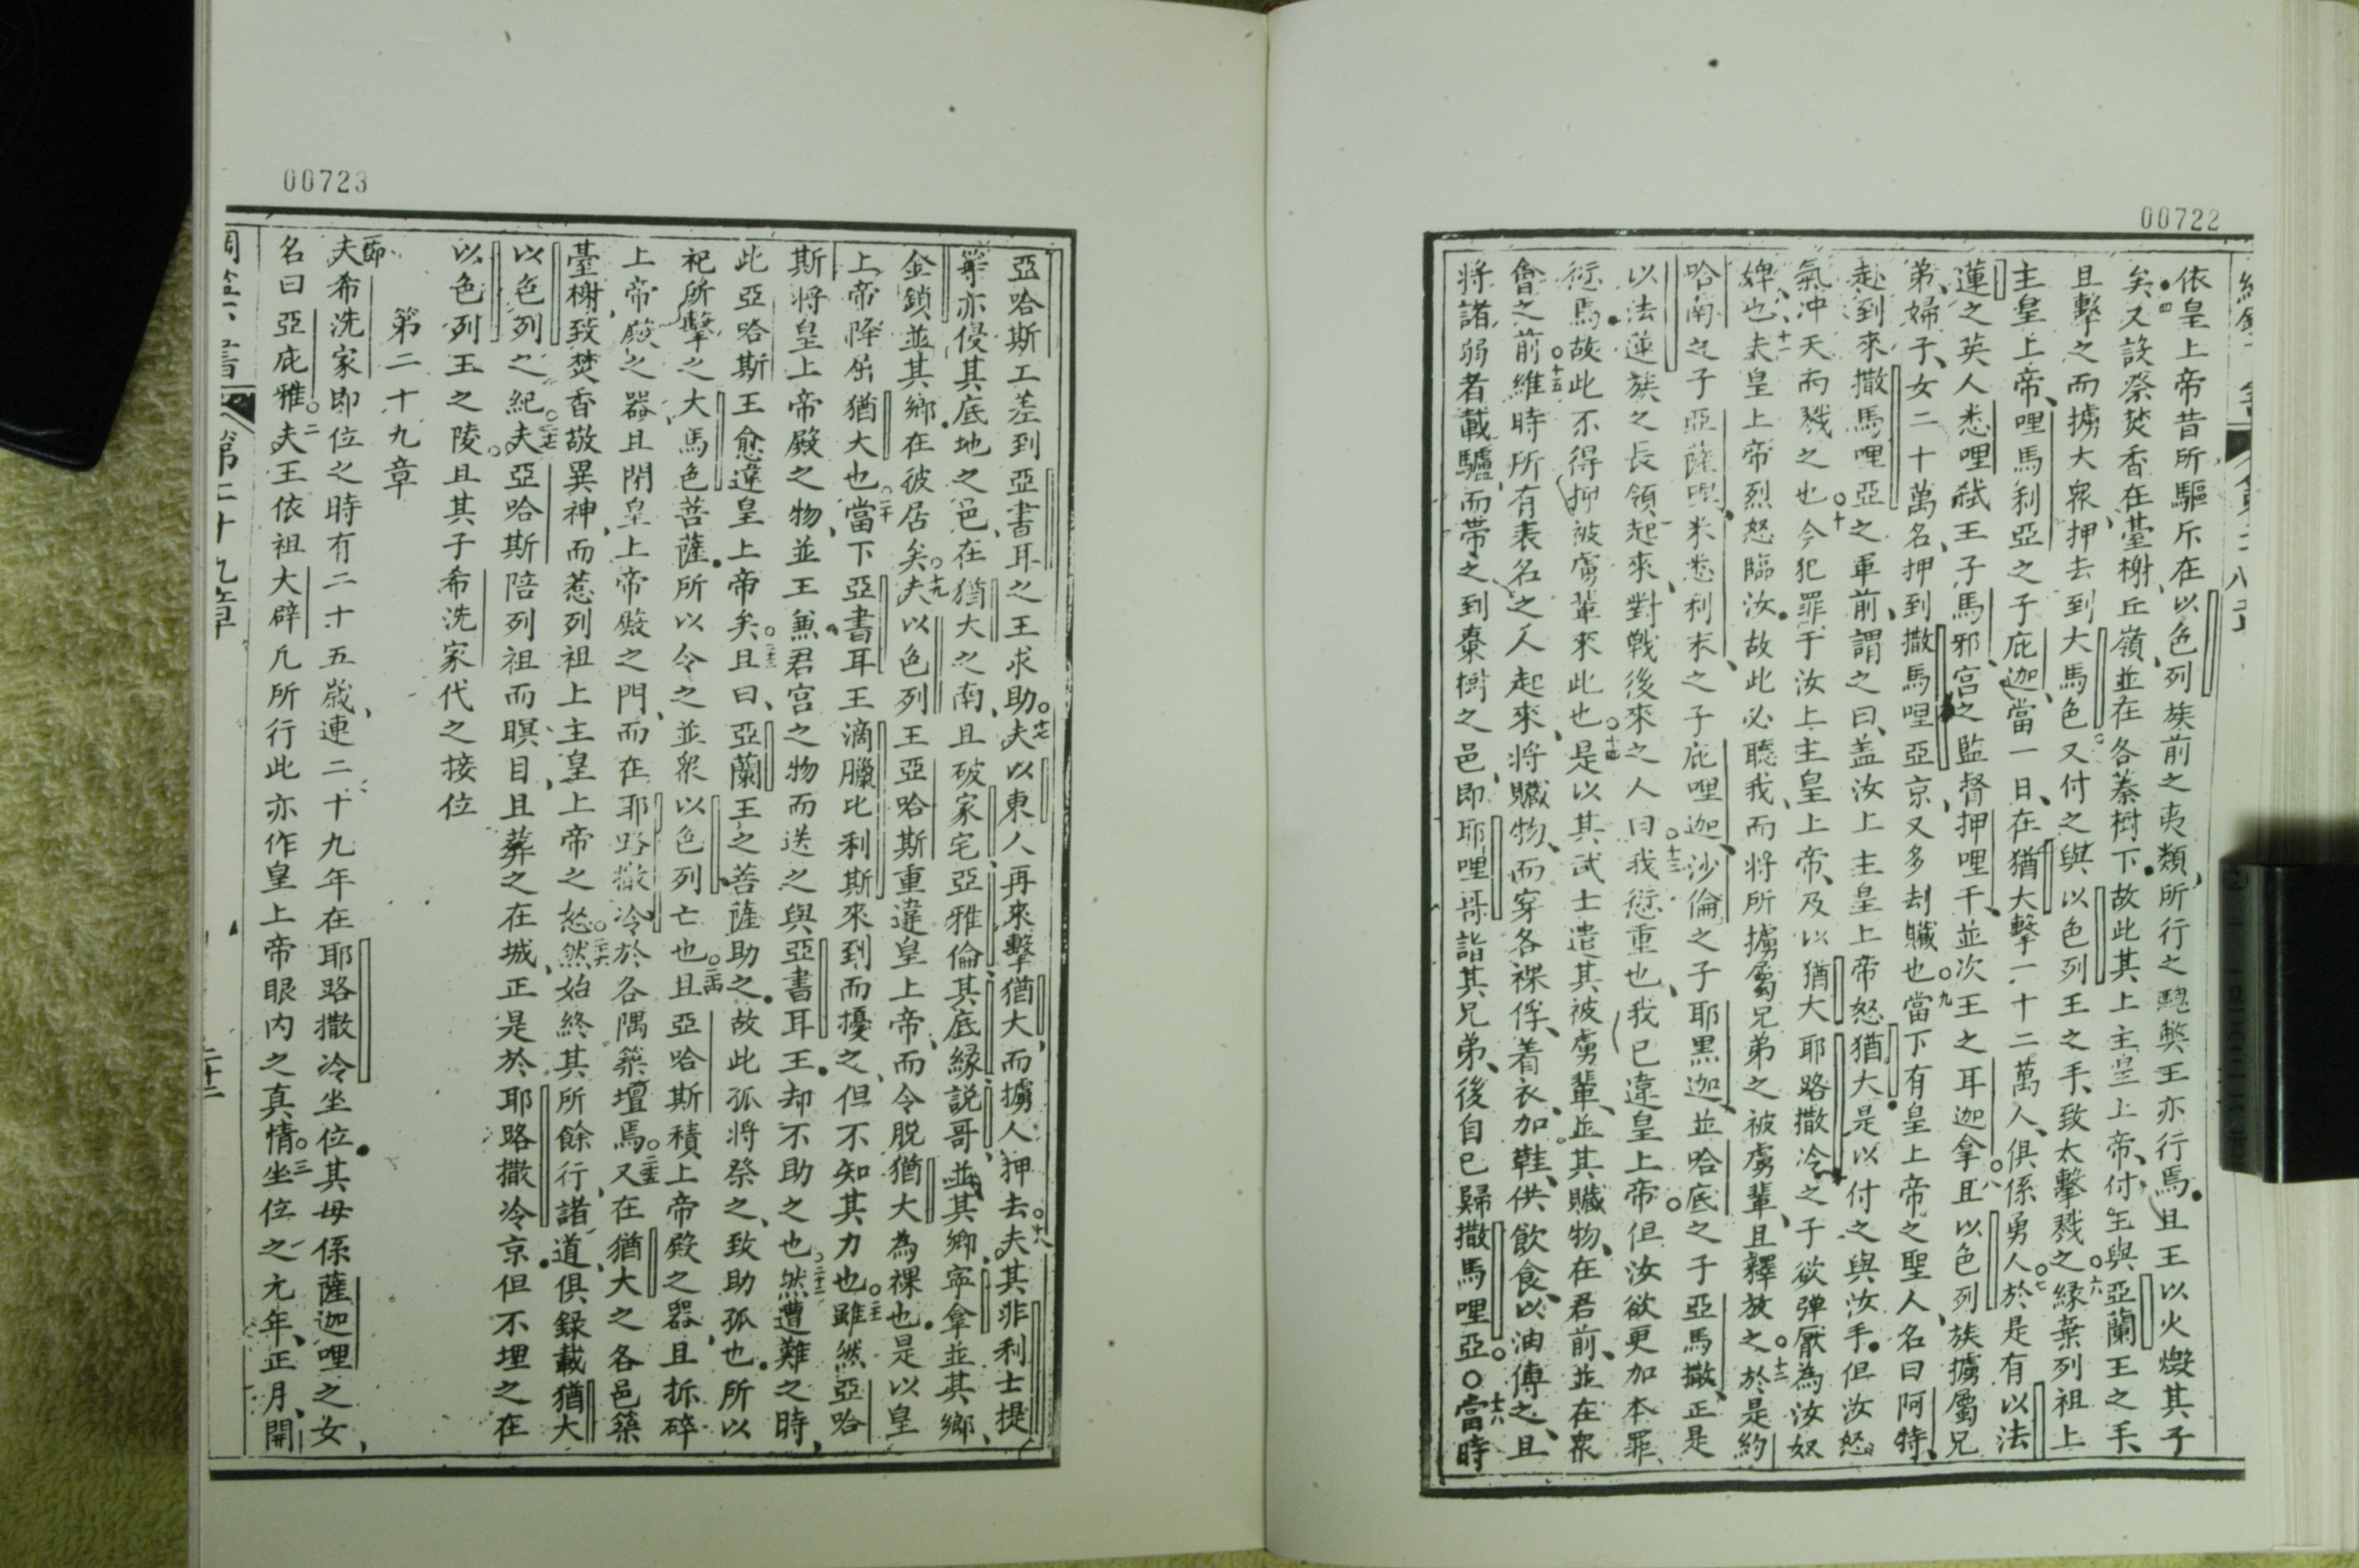 00722
依皇上帝昔所驅斥在以色列族前之夷類所行之弊王亦行焉且王以火燬其子
矣四又設祭焚香在臺榭丘嶺並在各蓁樹下故此其上主皇上帝付王與亞蘭王之手
且擊之而擄大衆押去到大馬色又付之與以色列王之手致太擊戮之六緣棄列祖上
主皇上帝哩馬利亞之子庇迦當一日在猶大擊一十二萬人俱係勇人七於是有以法
蓮之英人悉哩弒王子馬邪宮之監督押哩千並次王之耳迦拿八且以色列族擄屬兄
弟婦子女二十萬名押到撒馬哩亞京又多刦贓也九當下有皇上帝之聖人名曰阿特
赴到來撒馬哩亞之軍前謂之曰蓋汝上主皇上帝怒猶大是以付之與汝手但汝怒
氣冲天而戮之也十今犯罪于汝上主皇上帝及以猶大耶路撒冷之子欲弹厭為汝奴
婢也十一夫皇上帝烈怒臨汝故此必聽我而将所擄屬兄弟之被虜輩且釋放之十二於是約
哈南之子亞薩哩米悉利末之子庇哩迦沙倫之子耶黑迦並哈底之子亞馬撒正是
以法蓮族之長領起來對戰後來之人十三曰我愆重也我已違皇上帝但汝欲更加本罪
愆焉故此不得押被虜輩來此也十四是以其武士遣其被虜輩並其贓物在君前並在衆
會之前十五維時所有表名之人起來将贓物而穿各裸俘着衣加鞋供飲食以油傅之且
将諸弱者載驢而帶之到棗樹之邑即耶哩哥詣其兄弟後自己歸撒馬哩亞○十六當時
00723
亞哈斯工差到亞書耳之王求助十七夫以東人再來擊猶大而擄人押去十八夫其非利士提
等亦侵其底地之邑在猶大之南且破家宅亞雅倫其底緣説哥並其鄉寧拿並其鄉
金鎖並其鄉在彼居矣十九夫以色列王亞哈斯重違皇上帝而令脱猶大為裸也是以皇
上帝降屈猶大也二十當下亞書耳王滴臘比利斯來到而擾之但不知其力也二十一雖然亞哈
斯将皇上帝殿之物並王兼君宮之物而送之與亞書耳王却不助之也二十二然遭難之時
此亞哈斯王愈違皇上帝矣二十三且曰亞蘭王之菩薩助之故此孤将祭之致助孤也所以
祀所擊之大馬色菩薩所以令之並衆以色列亡也二十四且亞哈斯積上帝殿之器且拆碎
上帝殿之器且閉皇上帝殿之門而在耶路撒冷於各隅築壇焉二十五又在猶大之各邑築
臺榭致焚香敬異神而惹列祖上主皇上帝之怒二十六然始終其所餘行諸道俱錄載猶大
以色列之紀二十七夫亞哈斯陪列祖而瞑目且葬之在城正是於耶路撒冷京但不埋之在
以色列王之陵且其子希洗家代之接位
第二十九章
一節夫希洗家即位之時有二十五歲連二十九年在耶路撒冷坐位其母係薩迦哩之女
名曰亞庇雅二夫王依祖大辟凡所行此亦作皇上帝眼内之真情三坐位之元年正月開
第二十九章